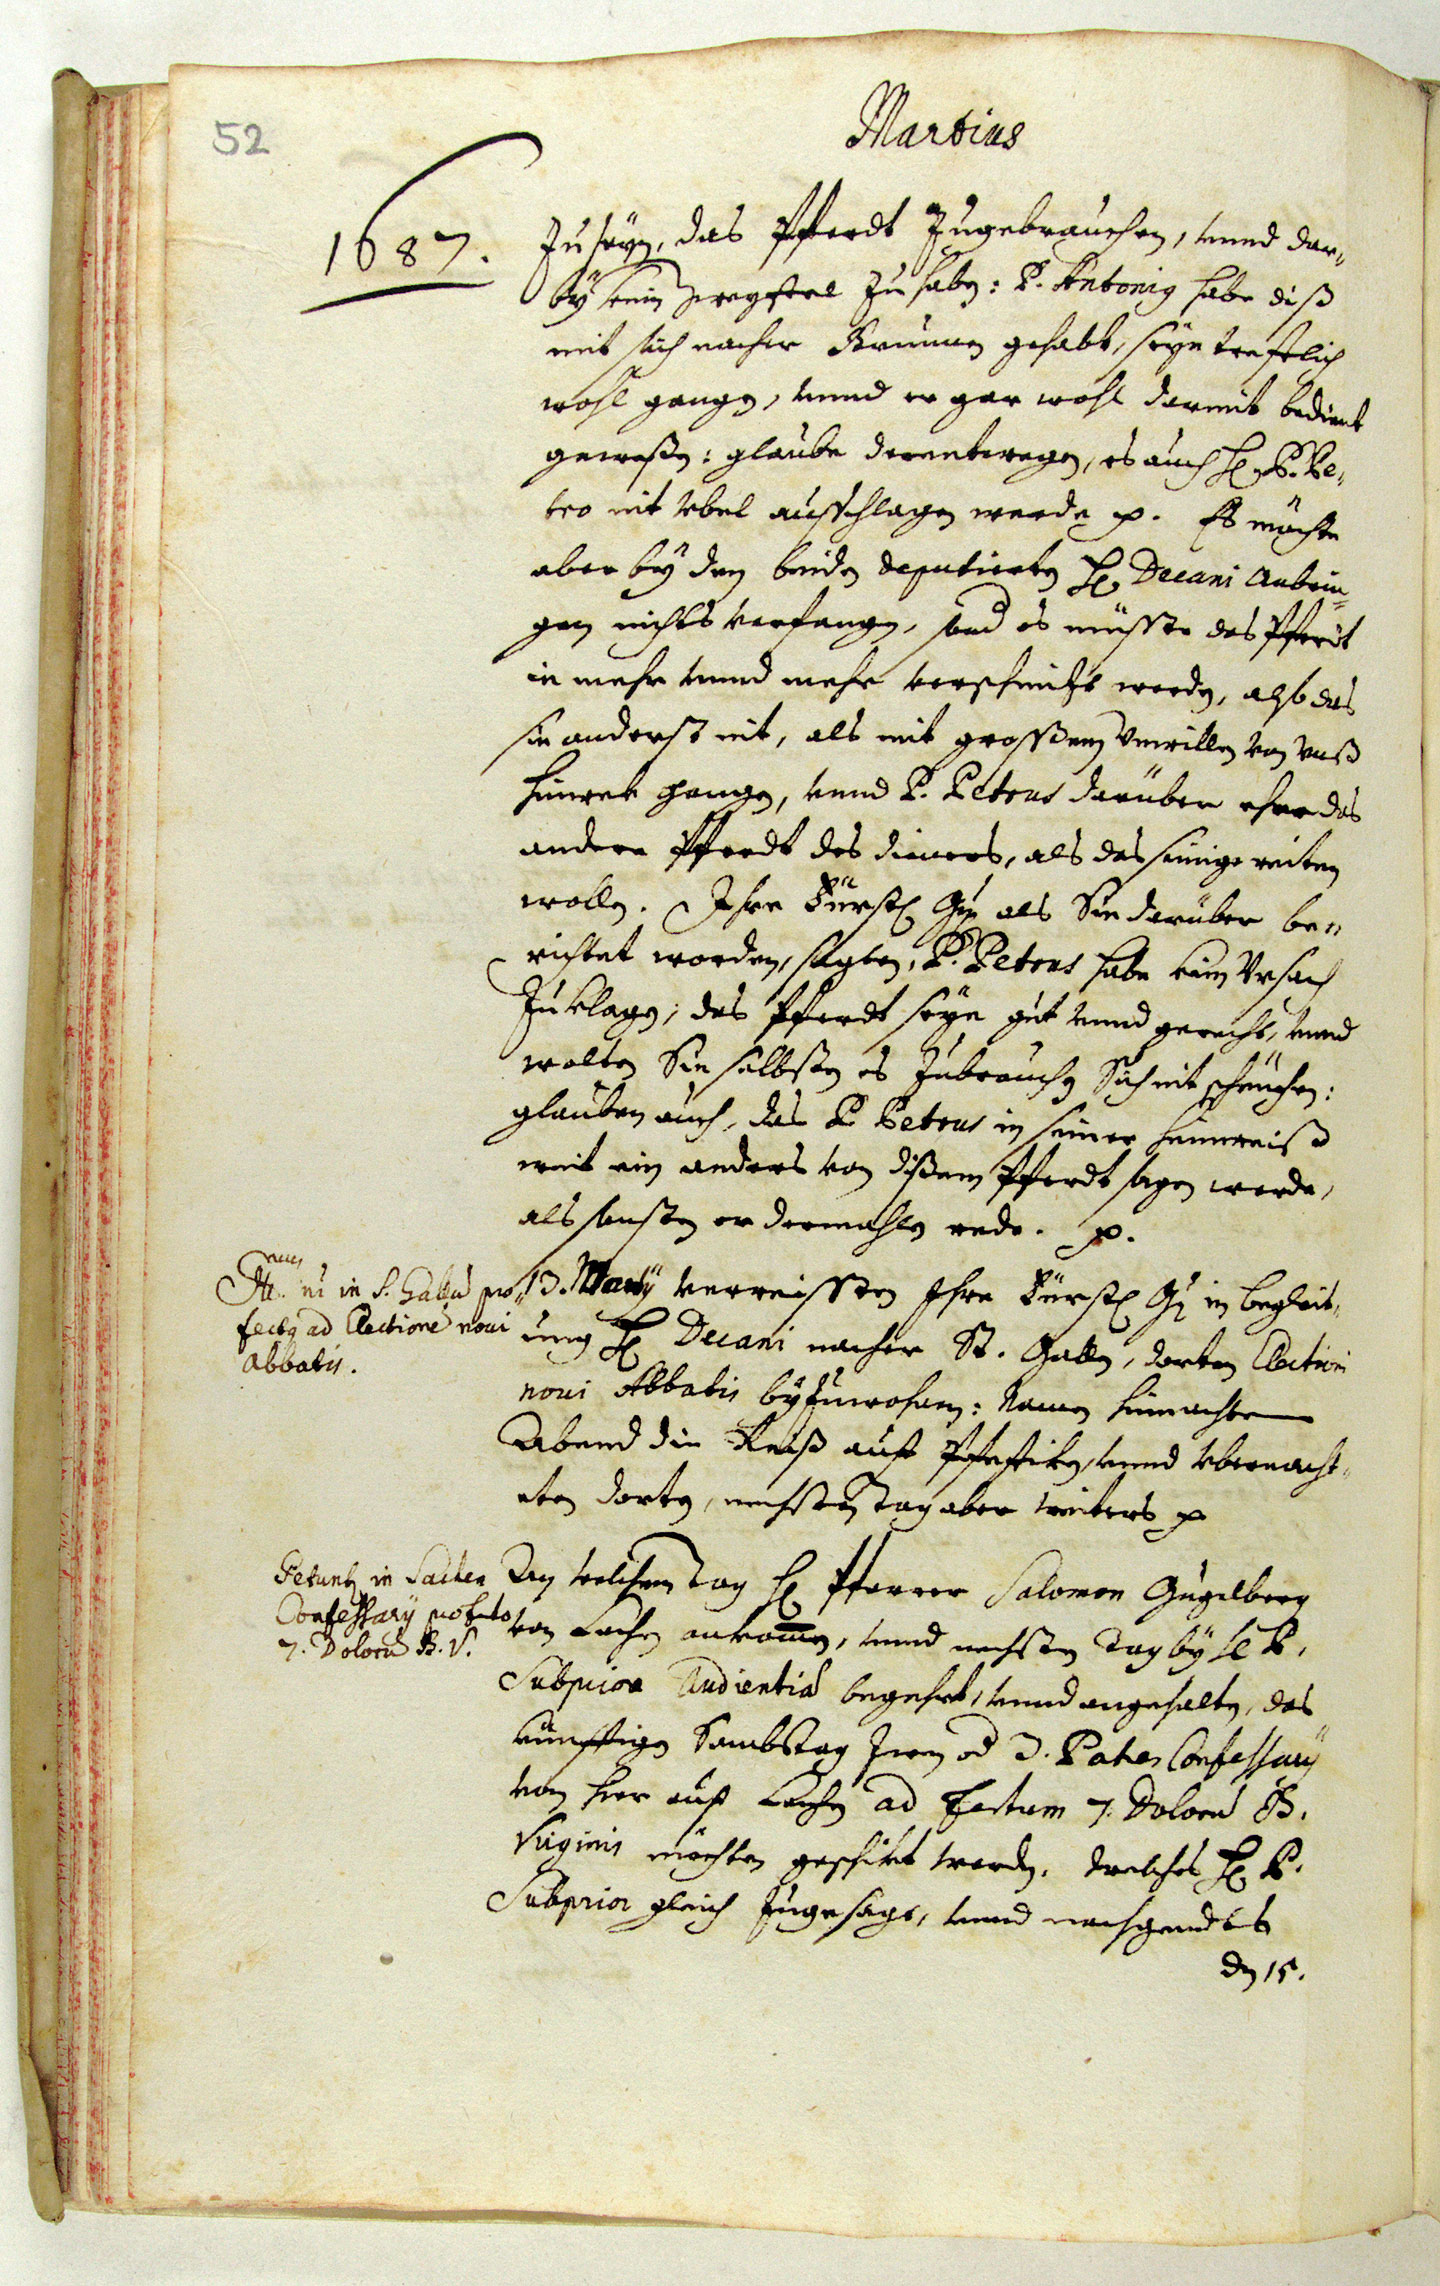 52
Martius
1687.
zu seÿn, das Pfferdt zugebrauchen, unnd dar„
bÿ kein zweyffel zu haben: P. Antonig habe diß
mit sich nacher Brunnen gehabt, seye trefflich
wohl gangen, unnd er gar wohl darmit bedient
geweßen: glaube derentwegen, es auch H. P. Pe„
tro nit übel ausschlagen werde p. Es möchte
aber bÿ den beiden deputierten H. Decani Anbrin„
gen nichts verfangen, sond es müsste das Pfferdt
ie mehr unnd mehr verschmitzt werden, also das
sie anderst nit, als mit grossem Unwillen von unß
hinwek gangen, unnd P. Petrus darüber eher das
andere Pfferdt des dieners, als das seinige reiten
wollen. Ihre Fürstl Gn als Sie darüber be„
richtet worden, sagten, P. Petrus habe kein Ursach
zu klagen; das Pfferdt seÿe gut unnd gerecht, unnd
wolten Sie selbsten es zubrauchen Sich nit scheüchen:
glauben auch, das P. Petrus in seiner heimreiß
weit ein anders von dißem Pfferdt sagen werde,
als sonsten er dermahlen rede. p.
in S. Gallũ pro„
fectg ad Electionẽ noui
Abbatis.
13. Martÿ verreissten Ihre Fürstl Gn in begleit„
ung H. Decani nacher St. Gallen, dorten Electioni
noui Abbatis bÿzuwohnen: Namen hinachte
Abend die Reiß auff Pfeffiken, unnd übernacht„
eten dorten, nechsten Tag aber weiters p
Petunt in Lachen
Confessarÿ pro festo
7. Dolorũ B. V.
An welchem Tag H Pfarrer Salomon Gugelberg
von Lachen ankommen, unnd nechsten Tag bÿ H P.
Subprior Audientiã begehrt, unnd angehalten, das
künfftigen Sambstag zwen od 3. Patres Confessarÿ
von hier auff Lachen ad festum 7. Dolorũ B.
Virginis möchten geschikt werden. Welches H P.
Subprior gleich zugesagt, unnd nachgendts
den 15.